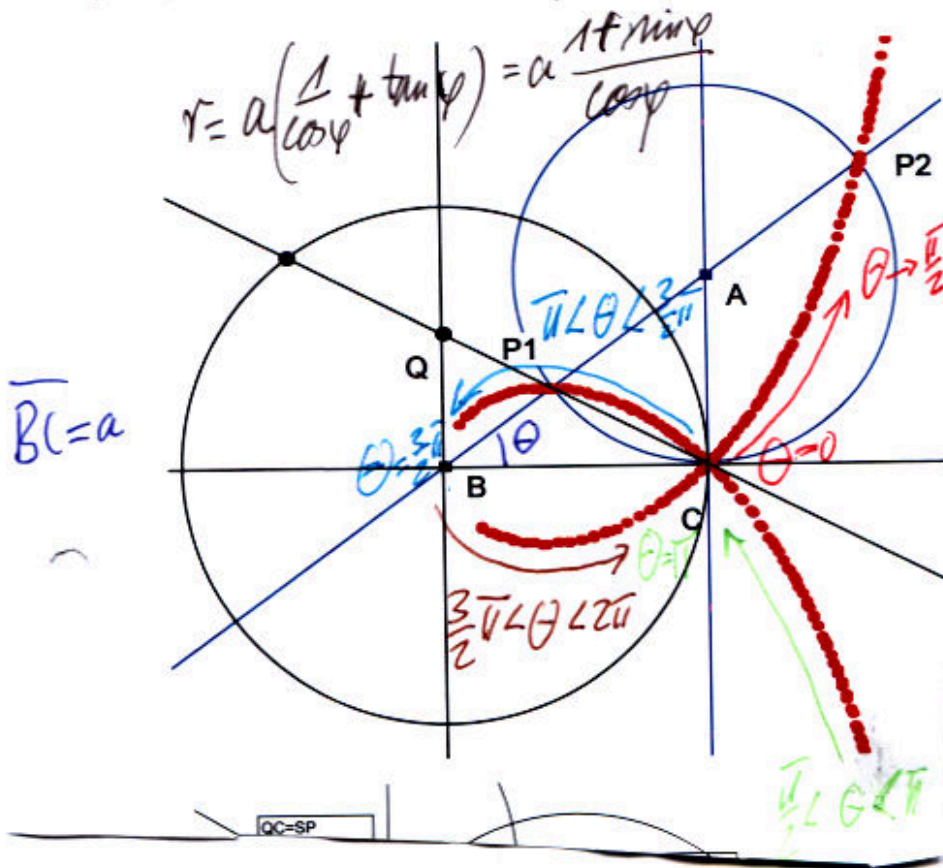 r = a(1/cosφ + tanφ) = a (1+sinφ)/cosφ
P2
θ→π/2
A
π<θ<3/2π
Q
P1
BC=a
θ=3/2π
θ
θ=0
B
C
θ=π
3/2π<θ<2π
π/2<θ<π
QC=SP